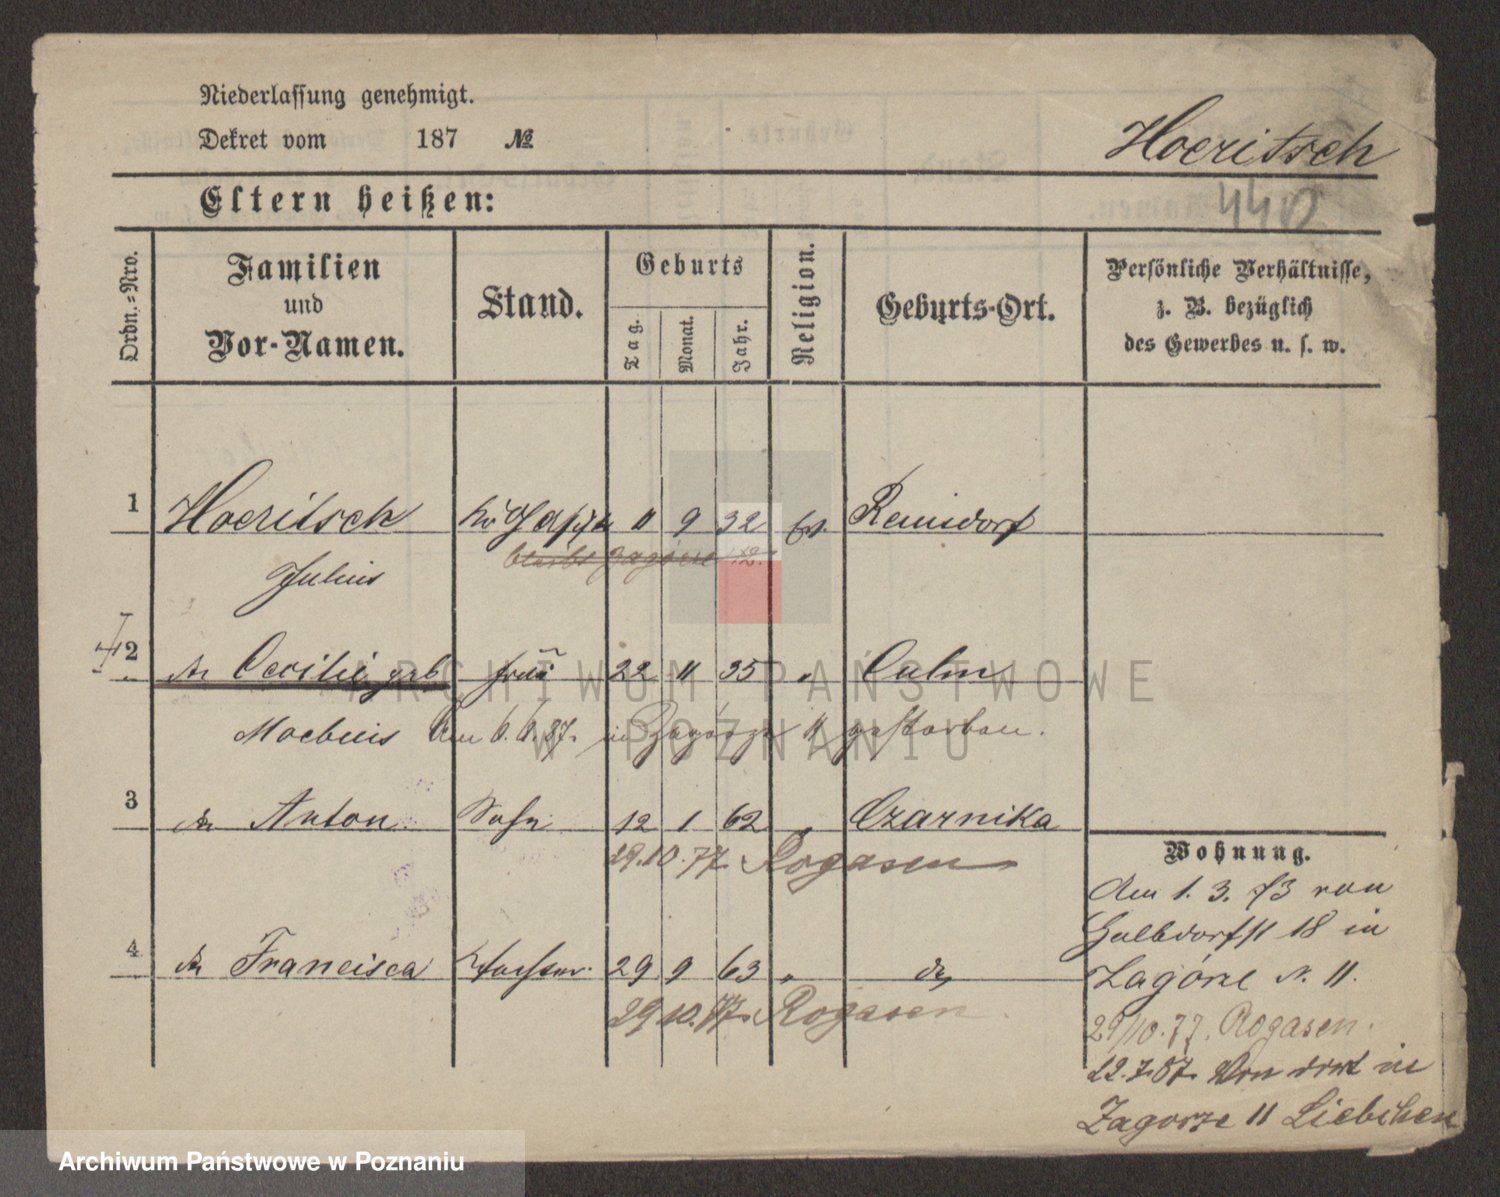 Niederlassung genehmigt.
Dekret vom 187 №
Hoeritsch
440
Eltern heißen:
Ordn.-Nro.
Familien
und
Vor-Namen.
Stand.
Geburts
Tag.
Monat.
Jahr.
Religion.
Geburts-Ort.
Persönliche Verhältnisse,
z. B. bezüglich
des Gewerbes u. s. w.
1 Hoeritsch 11 9 32 Ev. Reinsdorf
bleibt Zagorze 12.
Julius
2 Cecilie geb. Frau 22 11 35 " Culm
Moebius Am 6. 6. 87. in Zagorze 11 gestorben.
3 Anton Sohn 12 1 62 " Czarnika
29.10.77 Rogasen
Wohnung.
Am 1. 3. 73 von
4 Francisca Tochter 29 9 63 " do
29.10.77. Rogasen
18 in
Zagórze N. 11.
29/10.77. Rogasen.
12.7.87. Von dort in
Zagorze 11 Liebchen
ARCHIWUM PAŃSTWOWE
W POZNANIU
Archiwum Państwowe w Poznaniu